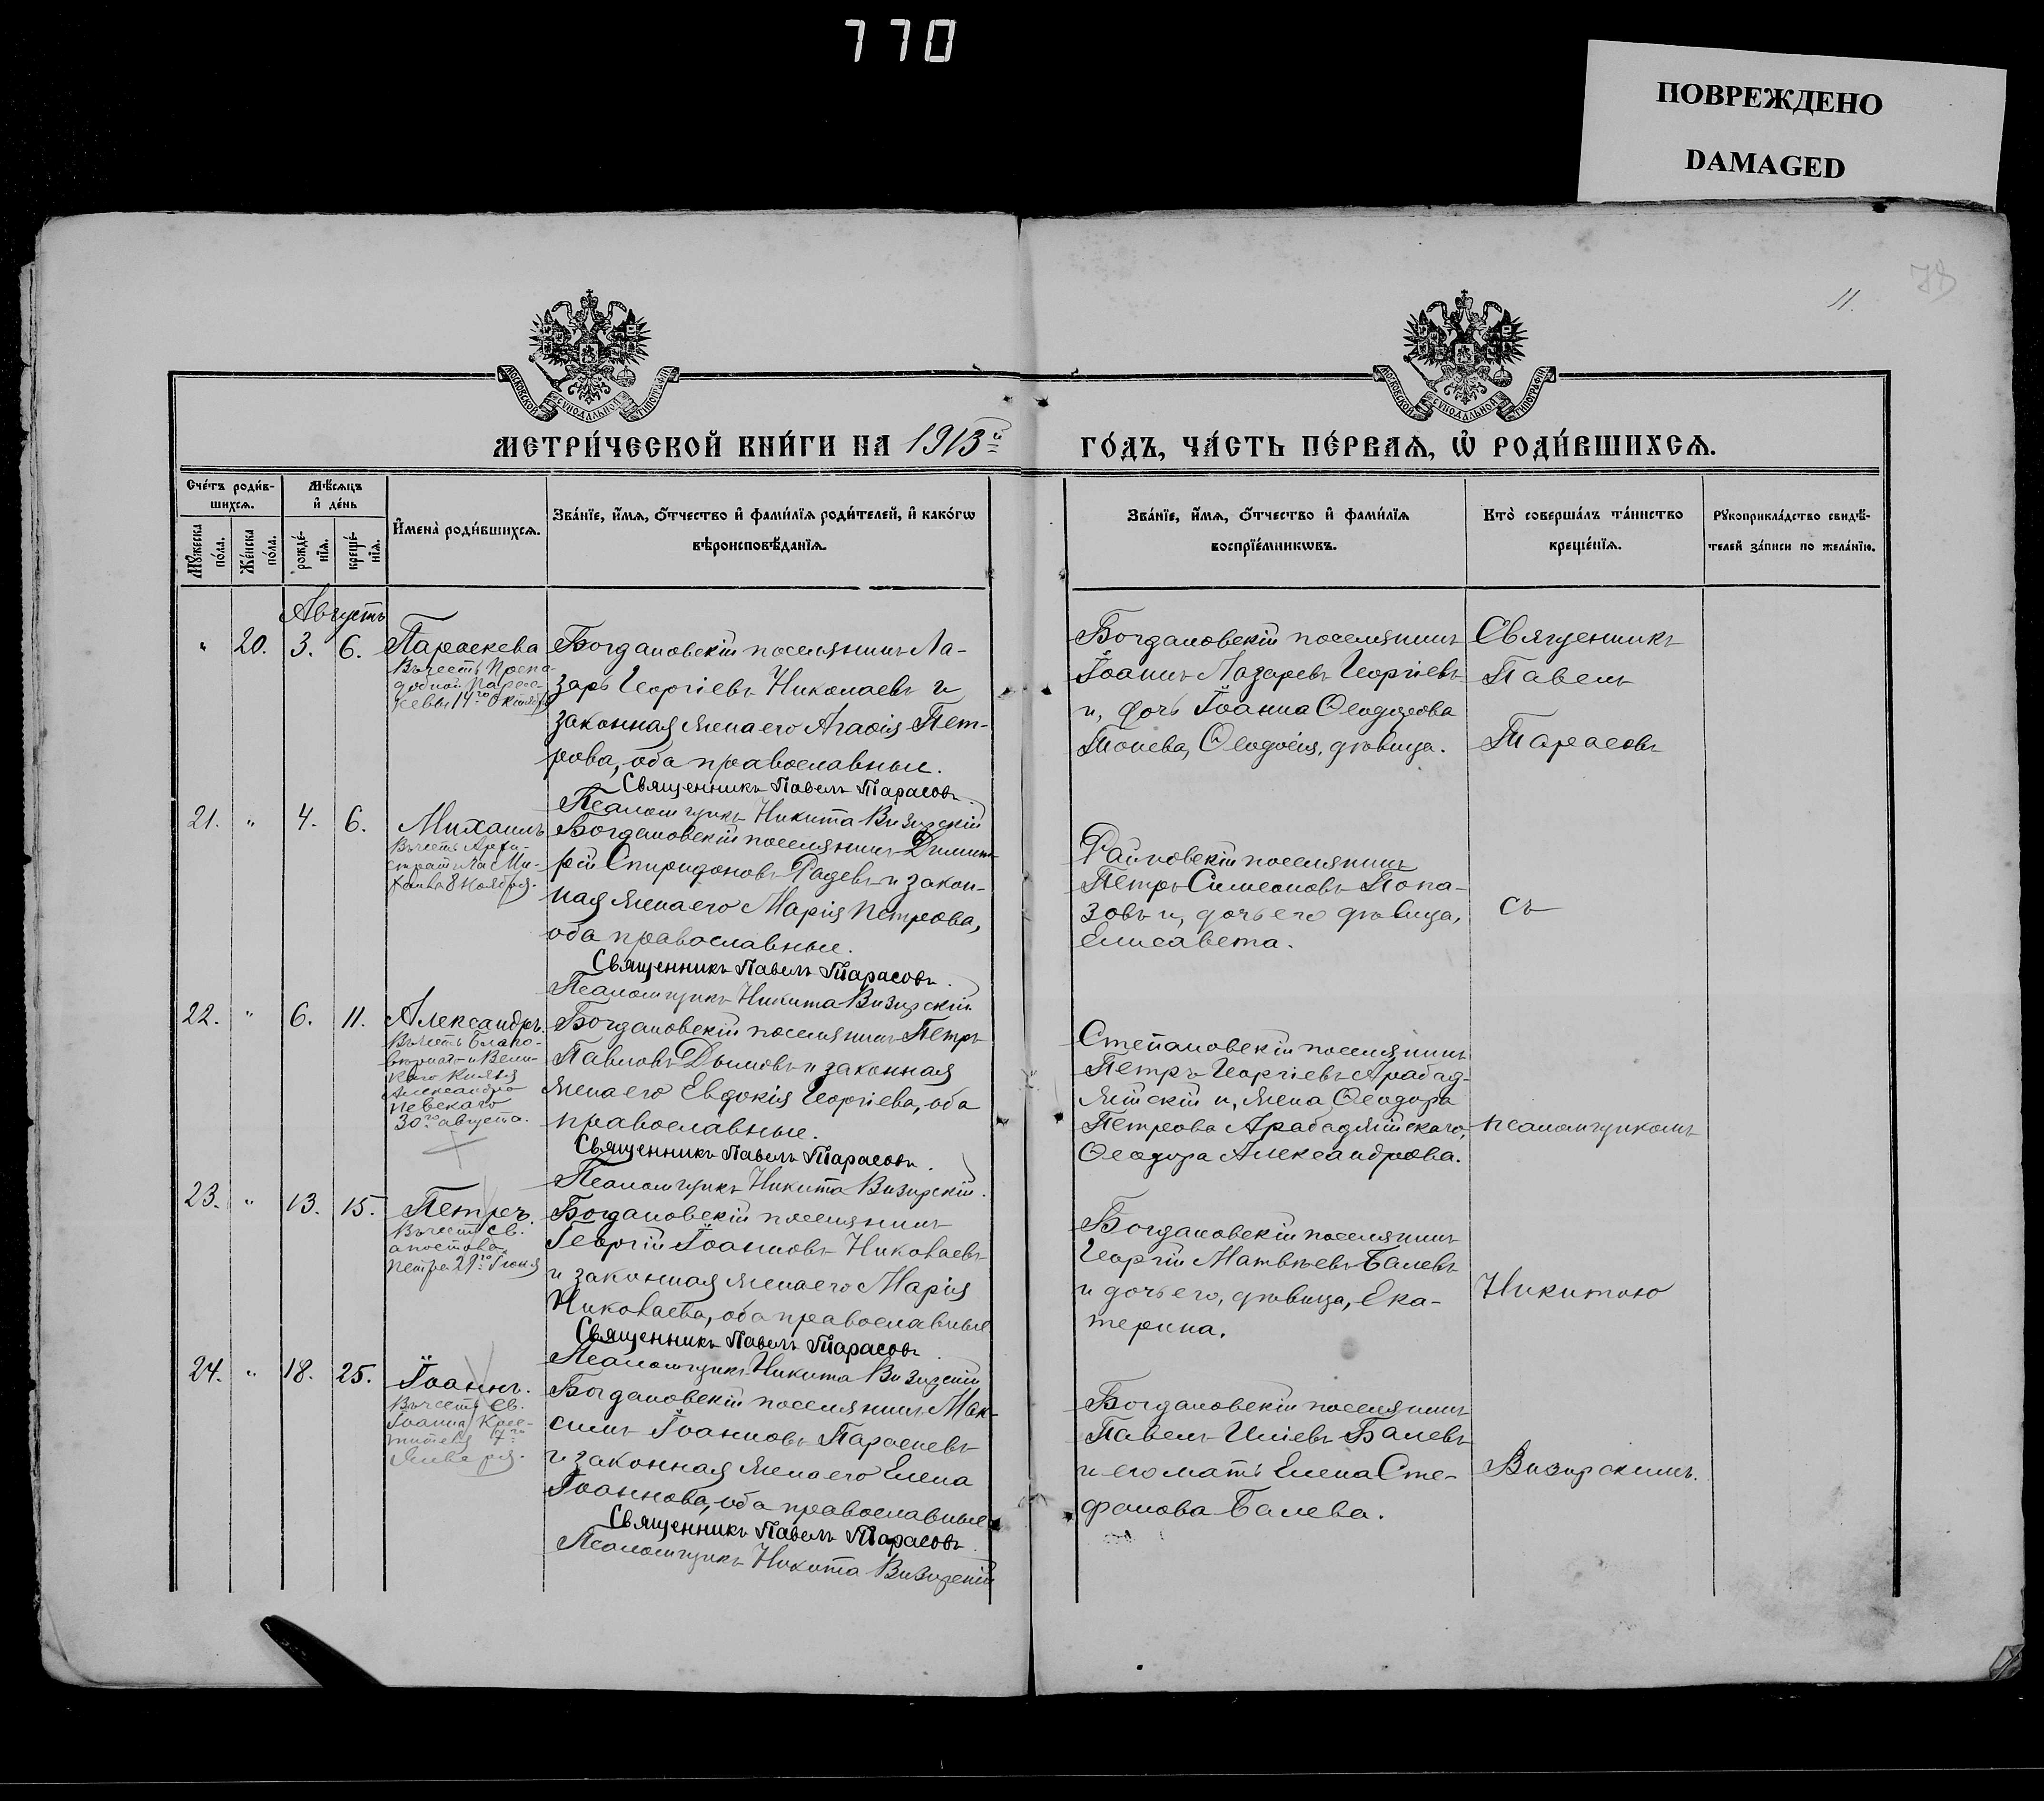 770
ПОВРЕЖДЕНО
DAMAGED
11.
МОСКОВСКОЙ СѴНОДАЛЬНОЙ ТИПОГРАФІИ
МОСКОВСКОЙ СѴНОДАЛЬНОЙ ТИПОГРАФІИ
МЕТРИ́ЧЕСКОЙ КНИ́ГИ НА 1913й
ГО́ДЪ, ЧА́СТЬ ПЕ́РВАѦ, Ѡ҆ РОДИ́ВШИХСѦ.
Сче́тъ роди́в-
шихсѧ.
Мꙋжеска по́ла.
Же́нска по́ла.
Мѣ́сѧцъ
и҆ де́нь
рожде́-
нїѧ.
креще́-
нїѧ.
И҆мена̀ роди́вшихсѧ.
Зва́нїе, и҆́мѧ, ѻ҆́тчество и҆ фами́лїѧ роди́телей, и҆ како́гѡ
вѣроисповѣ́данїѧ.
Зва́нїе, и҆́мѧ, ѻ҆́тчество и҆ фами́лїѧ
воспрїе́мникѡвъ.
Кто̀ соверша́лъ та́инство
креще́нїѧ.
Рꙋкоприкла́дство свидѣ́-
телей за́писи по жела́нїю.
Августъ
" 20. 3. 6. Параскева
Въ честь Препо-
добной Парас-
кевы 14го Октября
Богдановскій поселянинъ Ла-
зарь Георгіевъ Николаевъ и
законная жена его Агафія Пет-
рова, оба православные.
Священникъ Павелъ Тарасовъ.
Псаломщикъ Никита Визирскій
Богдановскій поселянинъ
Іоаннъ Лазаревъ Георгіевъ
и, дочь Іоанна Ѳеодорова
Тонева, Ѳеодосія, дѣвица.
Священникъ
Павелъ
Тарасовъ
21. " 4. 6. Михаилъ
Въ честь Архи-
стратига Ми-
хаила 8 Ноября.
Богдановскій поселянинъ Димит-
рій Спиридоновъ Радевъ и закон-
ная жена его Марія Петрова,
оба православные.
Священникъ Павелъ Тарасовъ.
Псаломщикъ Никита Визирскій
Райновскій поселянинъ
Петръ Симеоновъ Попа-
зовъ и, дочь его дѣвица,
Елисавета.
съ
22. " 6. 11. Александръ.
Въ честь Благо-
вѣрнаго и Вели-
каго Князя
Александра
Невскаго
30го августа.
Богдановскій поселянинъ Петръ
Павловъ Дымовъ и законная
жена его Евдокія Георгіева, оба
православные.
Священникъ Павелъ Тарасовъ.
Псаломщикъ Никита Визирскій.
Степановскій поселянинъ
Петръ Георгіевъ Арабад-
жійскій и, жена Ѳеодора
Петрова Арабаджійскаго,
Ѳеодора Александрова.
псаломщикомъ
23. " 13. 15. Петръ.
Въ честь св.
апостола
Петра 29го Іюня
Богдановскій поселянинъ
Георгій Іоанновъ Николаевъ
и законная жена его Марія
Николаева, оба православные
Священникъ Павелъ Тарасовъ
Псаломщикъ Никита Визирскій
Богдановскій поселянинъ
Георгій Матвѣевъ Балевъ
и дочь его, дѣвица, Ека-
терина.
Никитою
24. " 18. 25. Іоаннъ.
Въ честь Св.
Іоанна Крес-
тителя 7го
Января.
Богдановскій поселянинъ Мак-
симъ Іоанновъ Параскевъ
и законная жена его Елена
Іоаннова, оба православные
Священникъ Павелъ Тарасовъ.
Псаломщикъ Никита Визирскій
Богдановскій поселянинъ
Павелъ Иліевъ Балевъ
и его мать Елена Сте-
фанова Балева.
Визирскимъ.